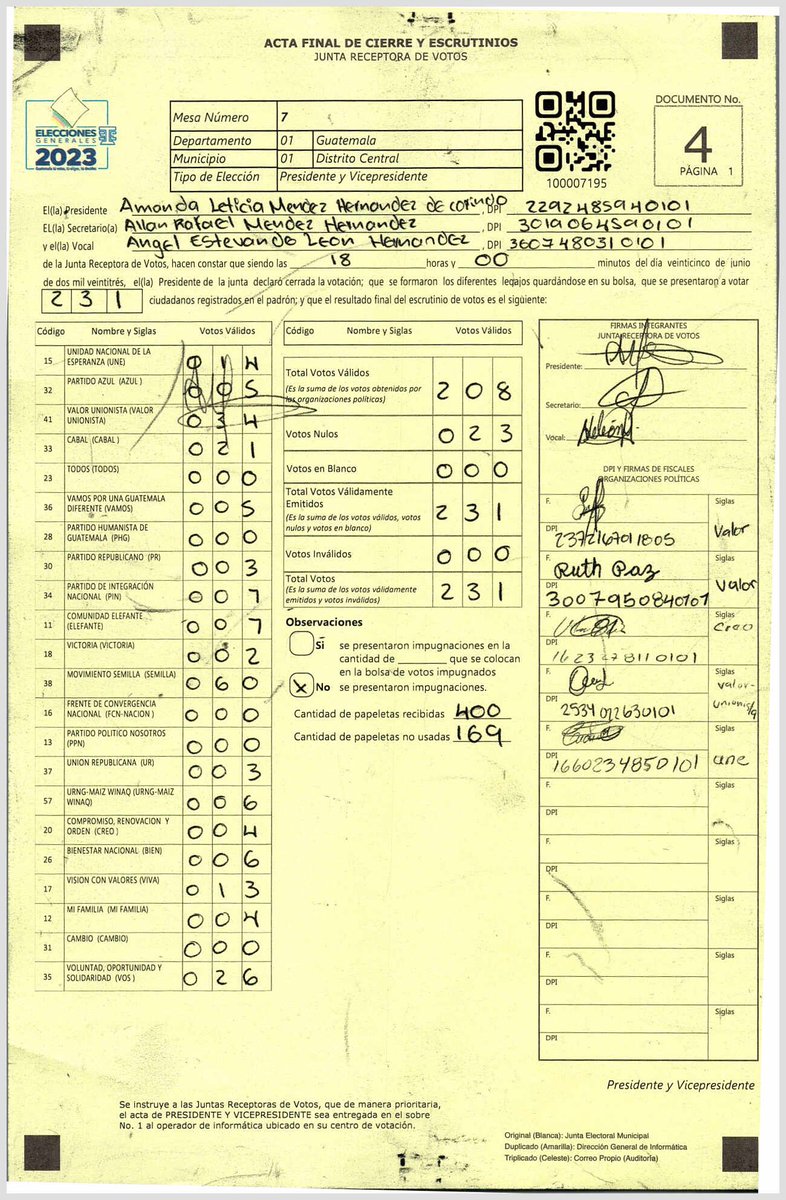 ACTA FINAL DE CIERRE Y ESCRUTINIOS
JUNTA RECEPTORA DE VOTOS
ELECCIONES
GENERALES
2023
Mesa Número 7
Departamento 01 Guatemala
Municipio 01 Distrito Central
Tipo de Elección Presidente y Vicepresidente
100007195
DOCUMENTO No.
4
PÁGINA 1
El(la) Presidente Amanda Leticia Mendez Hernandez de , DPI 2292485940101
EL(la) Secretario(a) Allan Rafael Mendez Hernandez , DPI 3019064590101
y el(la) Vocal Angel Estevando Leon Hernandez , DPI 360748031 0101
de la Junta Receptora de Votos, hacen constar que siendo las 18 horas y 00 minutos del día veinticinco de junio
de dos mil veintitrés, el(la) Presidente de la junta declaró cerrada la votación; que se formaron los diferentes legajos quardándose en su bolsa, que se presentaron a votar
231 ciudadanos registrados en el padrón; y que el resultado final del escrutinio de votos es el siguiente:
Código Nombre y Siglas Votos Válidos
15 UNIDAD NACIONAL DE LA ESPERANZA (UNE) 014
32 PARTIDO AZUL (AZUL ) 005
41 VALOR UNIONISTA (VALOR UNIONISTA) 034
33 CABAL (CABAL ) 021
23 TODOS (TODOS) 000
36 VAMOS POR UNA GUATEMALA DIFERENTE (VAMOS) 005
28 PARTIDO HUMANISTA DE GUATEMALA (PHG) 000
30 PARTIDO REPUBLICANO (PR) 003
34 PARTIDO DE INTEGRACIÓN NACIONAL (PIN) 007
11 COMUNIDAD ELEFANTE (ELEFANTE) 007
18 VICTORIA (VICTORIA) 002
38 MOVIMIENTO SEMILLA (SEMILLA) 060
16 FRENTE DE CONVERGENCIA NACIONAL (FCN-NACION ) 000
13 PARTIDO POLITICO NOSOTROS (PPN) 000
37 UNION REPUBLICANA (UR) 003
57 URNG-MAIZ WINAQ (URNG-MAIZ WINAQ) 006
20 COMPROMISO, RENOVACION Y ORDEN (CREO ) 004
26 BIENESTAR NACIONAL (BIEN) 006
17 VISION CON VALORES (VIVA) 013
12 MI FAMILIA (MI FAMILIA) 004
31 CAMBIO (CAMBIO) 000
35 VOLUNTAD, OPORTUNIDAD Y SOLIDARIDAD (VOS ) 026
Código Nombre y Siglas Votos Válidos
Total Votos Válidos 208
(Es la suma de los votos obtenidos por
las organizaciones políticas)
Votos Nulos 023
Votos en Blanco 000
Total Votos Válidamente
Emitidos 231
(Es la suma de los votos válidos, votos
nulos y votos en blanco)
Votos Inválidos 000
Total Votos 231
(Es la suma de los votos válidamente
emitidos y votos inválidos)
Observaciones
Sí se presentaron impugnaciones en la
cantidad de ________ que se colocan
en la bolsa de votos impugnados
X No se presentaron impugnaciones.
Cantidad de papeletas recibidas 400
Cantidad de papeletas no usadas 169
FIRMAS INTEGRANTES
JUNTA RECEPTORA DE VOTOS
Presidente:
Secretario:
Vocal:
DPI Y FIRMAS DE FISCALES
ORGANIZACIONES POLÍTICAS
F. Siglas
DPI 2372167011805 Valor
F. Ruth Paz Siglas
DPI 3007950840101 Valor
F. Siglas
DPI 1623278110101 Creo
F. Siglas
DPI 2534022630101 valor-unionista
F. Siglas
DPI 1660234850101 une
F. Siglas
DPI
F. Siglas
DPI
F. Siglas
DPI
F. Siglas
DPI
F. Siglas
DPI
Presidente y Vicepresidente
Se instruye a las Juntas Receptoras de Votos, que de manera prioritaria,
el acta de PRESIDENTE Y VICEPRESIDENTE sea entregada en el sobre
No. 1 al operador de informática ubicado en su centro de votación.
Original (Blanca): Junta Electoral Municipal
Duplicado (Amarilla): Dirección General de Informática
Triplicado (Celeste): Correo Propio (Auditoría)